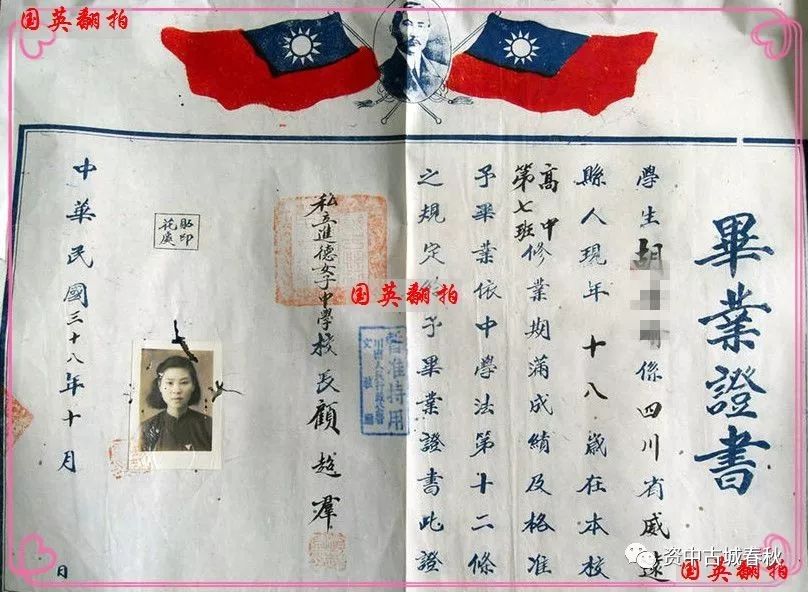 畢業證書
學生胡係四川省威遠
縣人現年十八歲在本校
高中第七班修業期滿成績及格准
予畢業依中學法第十二條
之規定給予畢業證書此證
私立進德女子中學校長顧越潭
貼印花處
中華民國三十八年十月 日
暫准持用
国英翻拍
国英翻拍
国英翻拍
国英翻拍
资中古城春秋